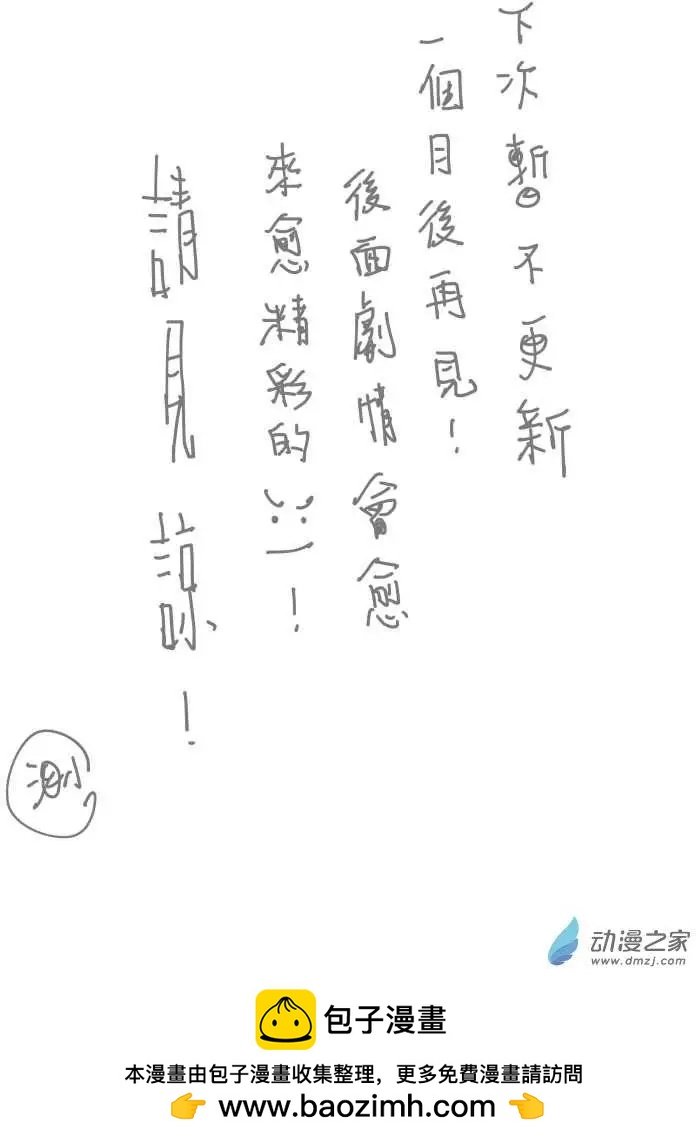 下次暫不更新
一個月後再見！
後面劇情會愈
來愈精彩的！
請見諒！
测
动漫之家
www.dmzj.com
包子漫畫
本漫畫由包子漫畫收集整理，更多免費漫畫請訪問
👉 www.baozimh.com 👈